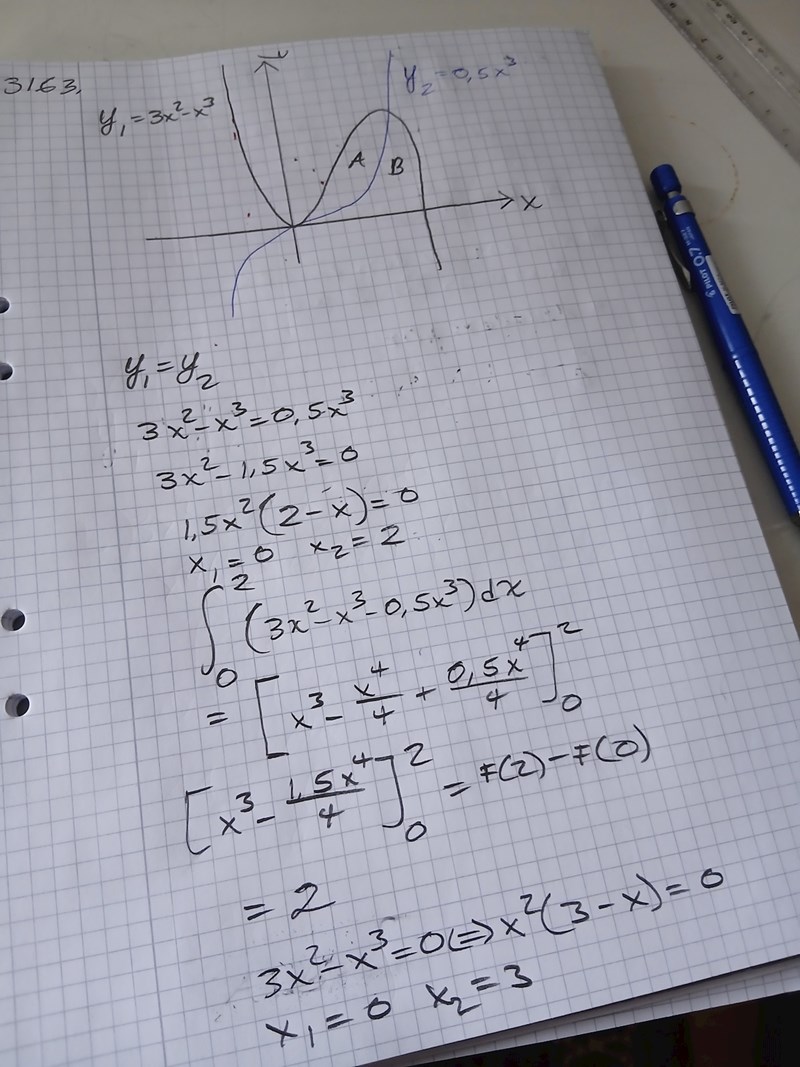 3163.
y₁ = 3x² - x³
y₂ = 0,5x³
A
B
x
PILOT 0.7
y₁ = y₂
3x² - x³ = 0,5x³
3x² - 1,5x³ = 0
1,5x²(2 - x) = 0
x₁ = 0 x₂ = 2
∫₀² (3x² - x³ - 0,5x³) dx
= [x³ - x⁴/4 + 0,5x⁴/4]₀²
[x³ - 1,5x⁴/4]₀² = F(2) - F(0)
= 2
3x² - x³ = 0 (=) x²(3 - x) = 0
x₁ = 0 x₂ = 3